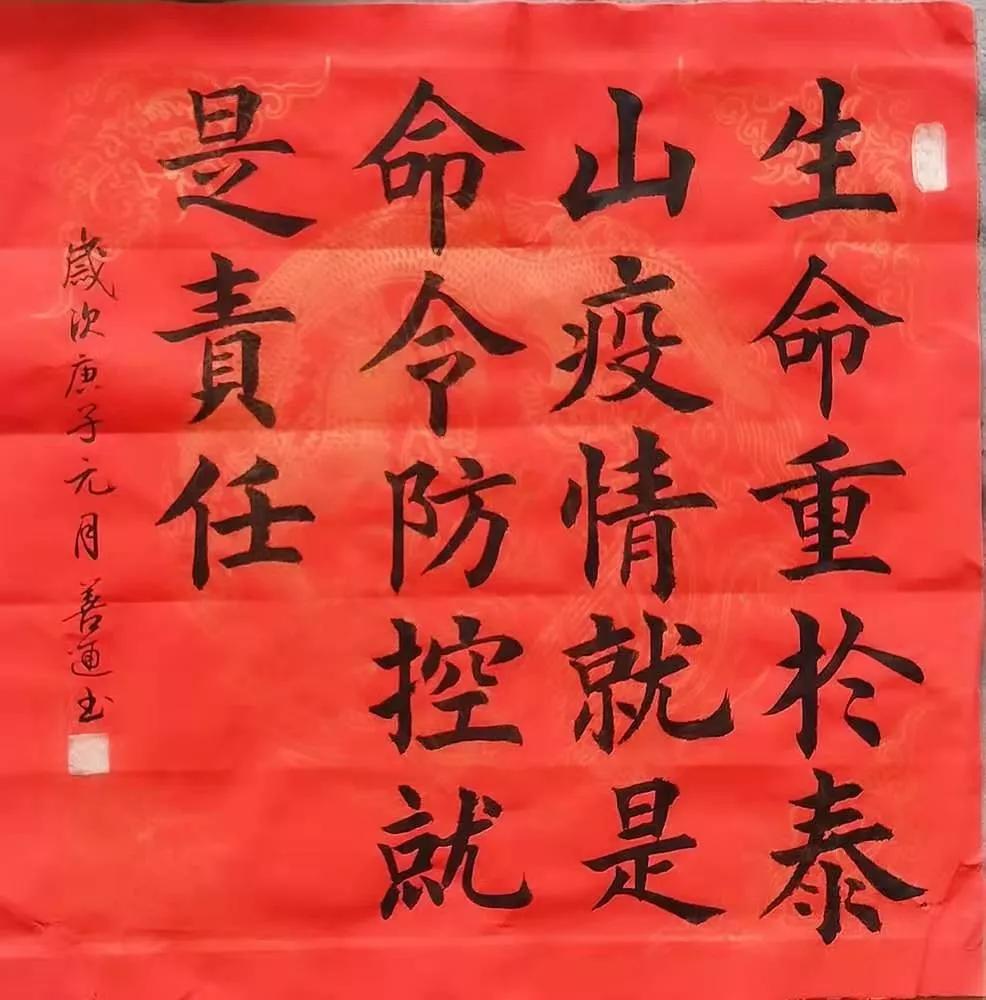 生命重於泰
山疫情就是
命令防控就
是責任
歲次庚子元月善通书